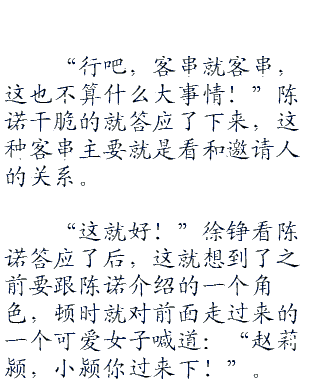 “行吧，客串就客串，
这也不算什么大事情！”陈
诺干脆的就答应了下来，这
种客串主要就是看和邀请人
的关系。
“这就好！”徐铮看陈
诺答应了后，这就想到了之
前要跟陈诺介绍的一个角
色，顿时就对前面走过来的
一个可爱女子喊道：“赵莉
颍，小颍你过来下！”。